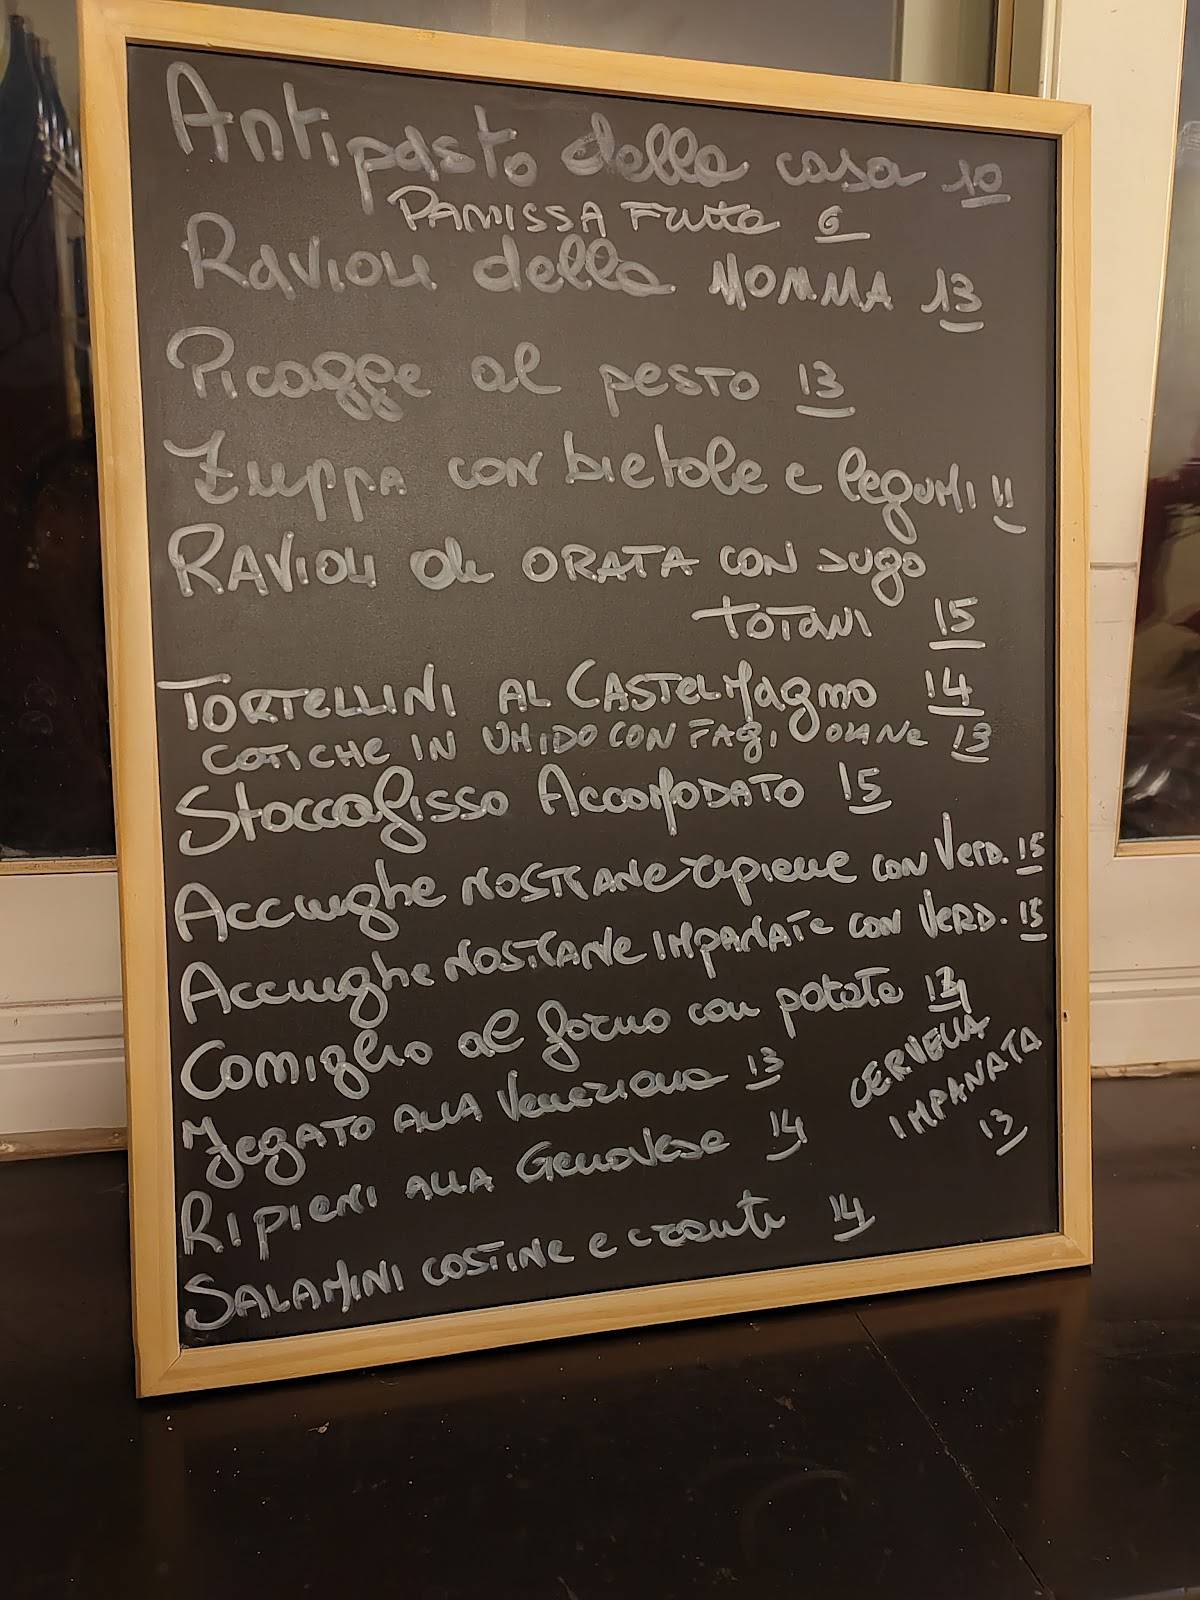 Antipasto della casa 10
PANISSA Fritta 6
RAVIOLI della NONNA 13
Picagge al pesto 13
Zuppa con bietole e legumi 11
RAVIOLI di ORATA CON sugo
TOTANI 15
TORTELLINI AL CASTELMAgNO 14
COTICHE IN UMIDO CON FAGIOLANE 13
Stoccafisso ACCOMODATO 15
Acciughe NOSTRANE ripiene con Verd. 15
Acciughe NOSTRANE IMPANATE con VERD. 15
Coniglio al forno con patate
Fegato ALLA Veneziana 13
CERVELLA
IMPANATA
13
RIPIENI ALLA Genovese 14
SALAMINI COSTINE e crauti 14